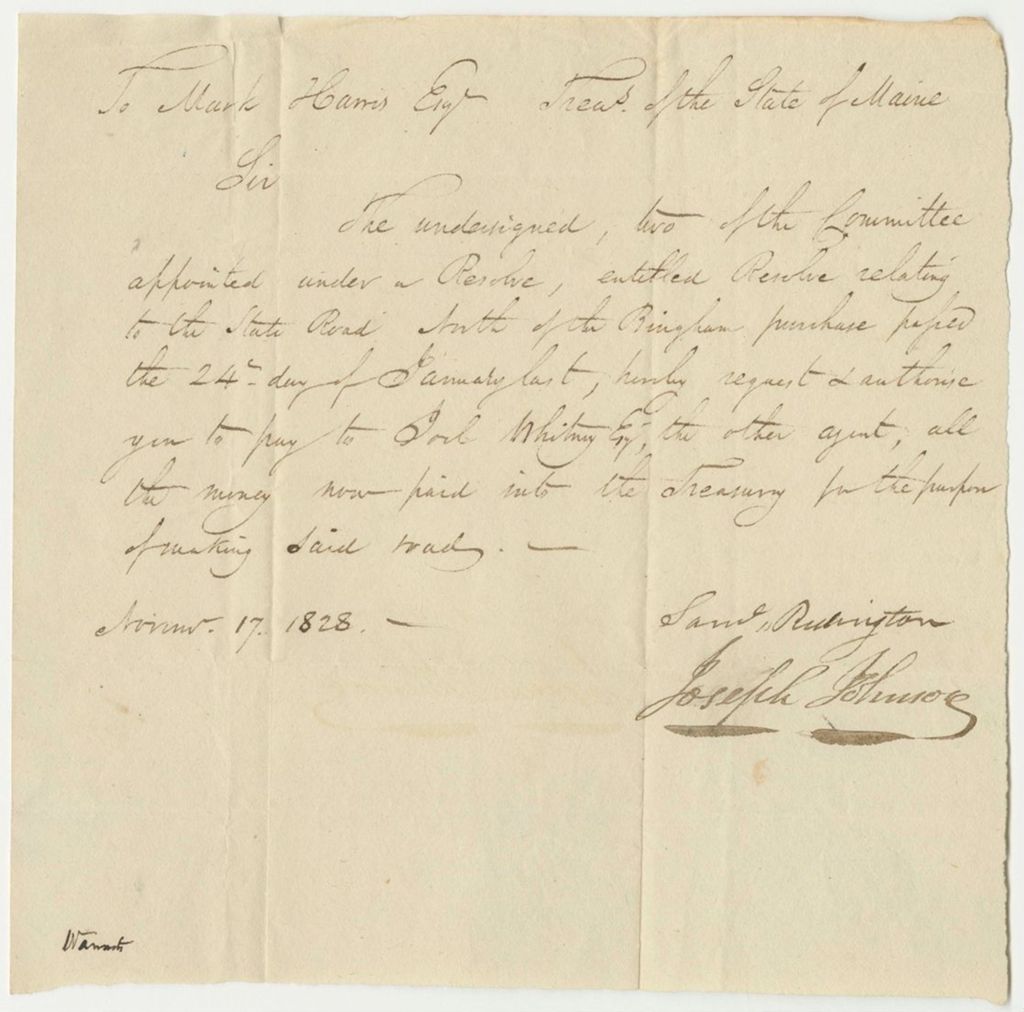 To Mark Harris Esqr Treas. of the State of Maine
Sir
The undersigned, two of the Committee
appointed under a Resolve, entitled Resolve relating
to the State Road North of the Bingham purchase passed
the 24th day of January last, hereby request & authorise
you to pay to Joel Whitney Esqr, the other agent, all
the money now paid into the Treasury for the purpose
of making said road. —
Novemr. 17. 1828. —
Saml. Redington
Joseph Johnson
Warrants